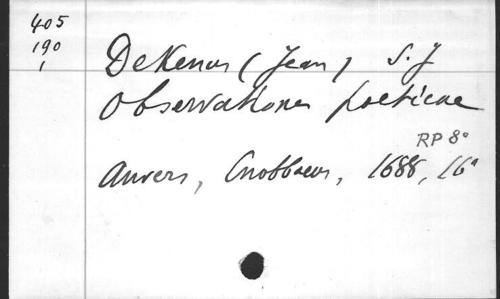 405
190
1
DeKenus (Jean) S.J
Observationes poeticae
RP 8°
Anvers, Cnobbaeus, 1688, 16°